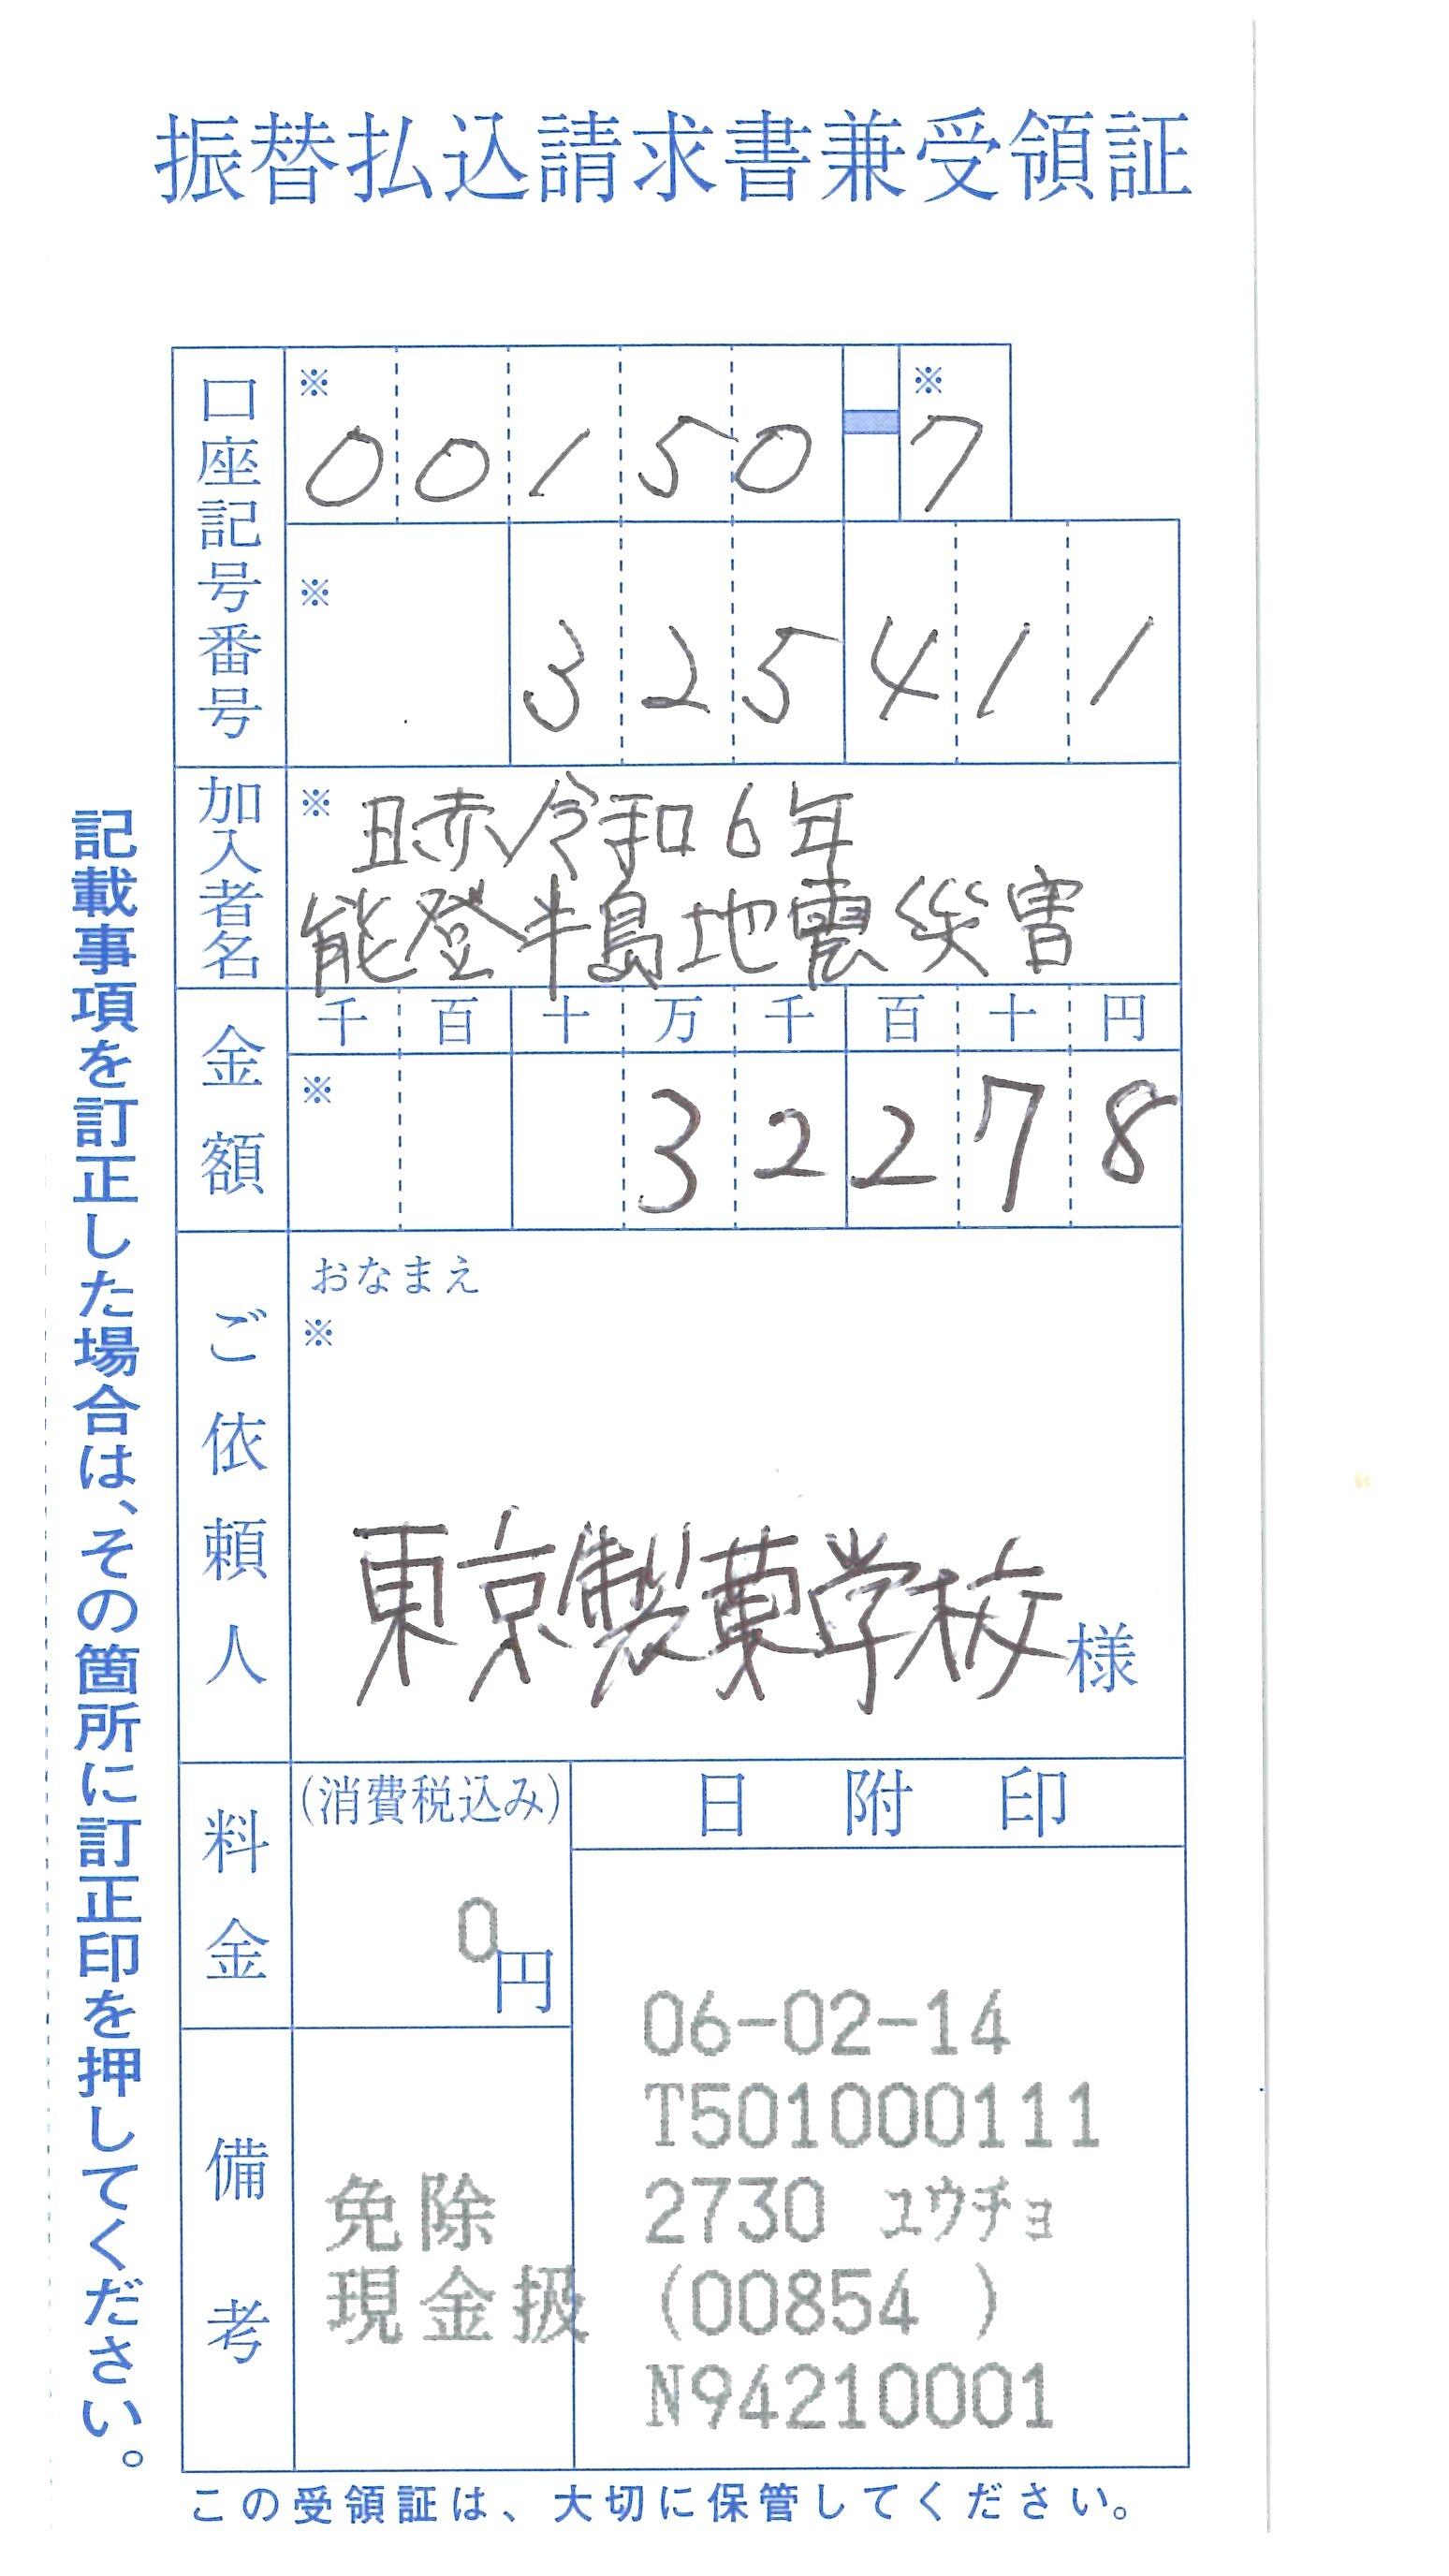 振替払込請求書兼受領証
口座記号番号
※
00150-7
※
※
325411
加入者名
※ 日赤令和6年
能登半島地震災害
金額
千 百 十 万 千 百 十 円
※
32278
ご依頼人
おなまえ
※
東京製菓学校様
料金
(消費税込み)
0円
日附印
06-02-14
T501000111
2730 ユウチョ
(00854 )
N94210001
備考
免除
現金扱
記載事項を訂正した場合は、その箇所に訂正印を押してください。
この受領証は、大切に保管してください。